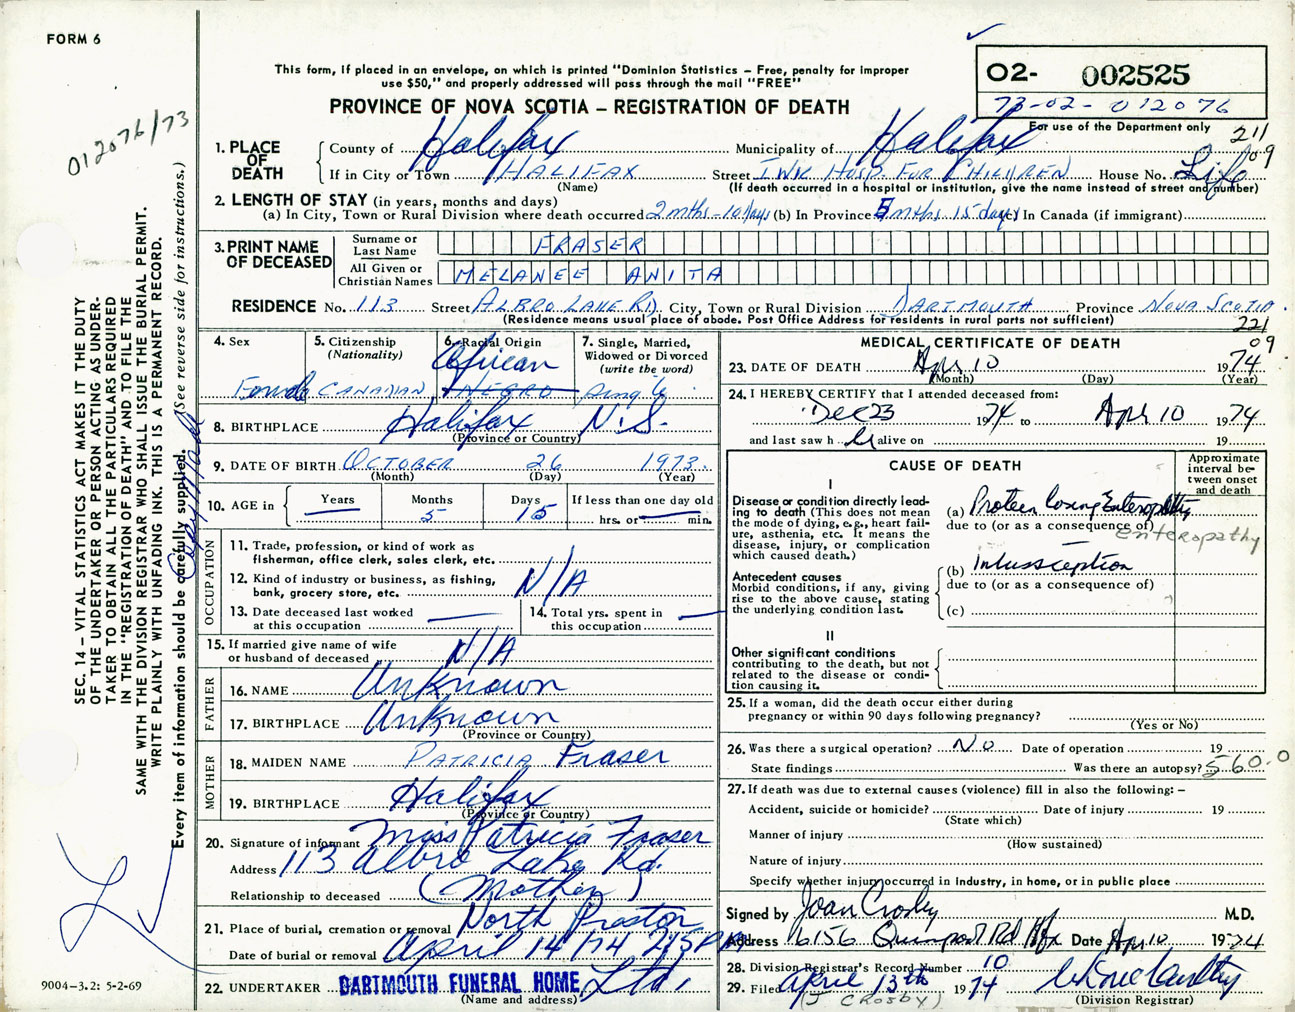 FORM 6
This form, if placed in an envelope, on which is printed "Dominion Statistics – Free, penalty for improper
use $50," and properly addressed will pass through the mail "FREE"
PROVINCE OF NOVA SCOTIA – REGISTRATION OF DEATH
02- 002525
73-02-012076
For use of the Department only
211
09
012076/73
1. PLACE OF DEATH
County of Halifax Municipality of Halifax
If in City or Town HALIFAX Street IWK HOSP. FOR CHILDREN House No.
(Name) (If death occurred in a hospital or institution, give the name instead of street and number)
Life
2. LENGTH OF STAY (in years, months and days)
(a) In City, Town or Rural Division where death occurred 2 mths - 10 days (b) In Province 5 mths 15 days (c) In Canada (if immigrant)
3. PRINT NAME OF DECEASED
Surname or Last Name FRASER
All Given or Christian Names MELANEE ANITA
RESIDENCE No. 113 Street ALBRO LAKE RD City, Town or Rural Division DARTMOUTH Province NOVA SCOTIA
(Residence means usual place of abode. Post Office Address for residents in rural parts not sufficient)
221
09
4. Sex Female
5. Citizenship (Nationality) CANADIAN
6. Racial Origin African NEGRO
7. Single, Married, Widowed or Divorced (write the word) Single
8. BIRTHPLACE Halifax N.S.
(Province or Country)
9. DATE OF BIRTH OCTOBER 26 1973
(Month) (Day) (Year)
10. AGE in Years Months 5 Days 15 If less than one day old hrs. or min.
OCCUPATION
11. Trade, profession, or kind of work as
fisherman, office clerk, sales clerk, etc.
12. Kind of industry or business, as fishing,
bank, grocery store, etc. N/A
13. Date deceased last worked
at this occupation
14. Total yrs. spent in
this occupation
15. If married give name of wife
or husband of deceased N/A
FATHER
16. NAME Unknown
17. BIRTHPLACE Unknown
(Province or Country)
MOTHER
18. MAIDEN NAME PATRICIA Fraser
19. BIRTHPLACE Halifax
(Province or Country)
20. Signature of informant Miss Patricia Fraser
Address 113 Albro Lake Rd.
Relationship to deceased (Mother)
21. Place of burial, cremation or removal North Preston
Date of burial or removal April 14/74 2:15 PM
22. UNDERTAKER DARTMOUTH FUNERAL HOME Ltd.
(Name and address)
MEDICAL CERTIFICATE OF DEATH
23. DATE OF DEATH Apr 10 1974
(Month) (Day) (Year)
24. I HEREBY CERTIFY that I attended deceased from:
Dec 23 1974 to Apr 10 1974
and last saw h er alive on 19
CAUSE OF DEATH
Approximate interval between onset and death
I
Disease or condition directly lead-
ing to death (This does not mean
the mode of dying, e.g., heart fail-
ure, asthenia, etc. It means the
disease, injury, or complication
which caused death.)
(a) Protein losing Enteropathy
due to (or as a consequence of)
enteropathy
Antecedent causes
Morbid conditions, if any, giving
rise to the above cause, stating
the underlying condition last.
(b) Intussception
due to (or as a consequence of)
(c)
II
Other significant conditions
contributing to the death, but not
related to the disease or condi-
tion causing it.
25. If a woman, did the death occur either during
pregnancy or within 90 days following pregnancy?
(Yes or No)
26. Was there a surgical operation? No Date of operation 19
State findings Was there an autopsy?
560.0
27. If death was due to external causes (violence) fill in also the following: –
Accident, suicide or homicide? Date of injury 19
(State which)
Manner of injury
(How sustained)
Nature of injury
Specify whether injury occurred in Industry, in home, or in public place
Signed by Joan Crosby M.D.
Address 6156 Quinpool Rd Hfx Date Apr 10 1974
28. Division Registrar's Record Number 10
29. Filed April 13th 1974
(J CROSBY)
(Division Registrar)
SEC. 14 – VITAL STATISTICS ACT MAKES IT THE DUTY
OF THE UNDERTAKER OR PERSON ACTING AS UNDER-
TAKER TO OBTAIN ALL THE PARTICULARS REQUIRED
IN THE "REGISTRATION OF DEATH" AND TO FILE THE
SAME WITH THE DIVISION REGISTRAR WHO SHALL ISSUE THE BURIAL PERMIT.
WRITE PLAINLY WITH UNFADING INK. THIS IS A PERMANENT RECORD.
Every item of information should be carefully supplied. (See reverse side for instructions.)
9004-3.2: 5-2-69